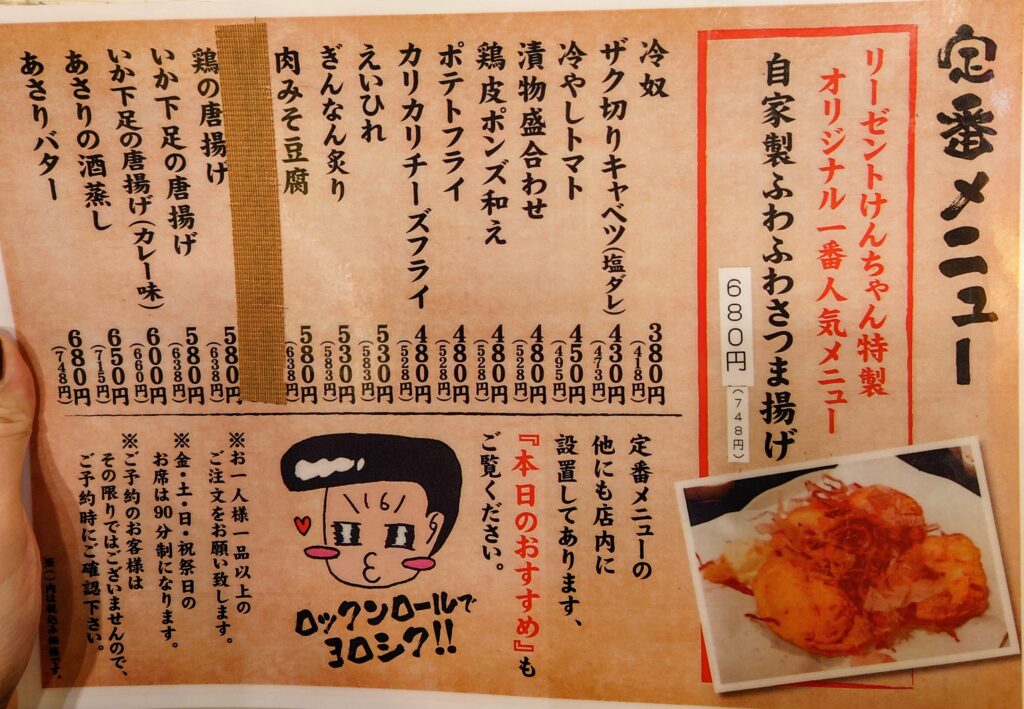 定番メニュー
リーゼントけんちゃん特製
オリジナル一番人気メニュー
自家製ふわふわさつま揚げ
680円
(748円)
冷奴 380円(418円)
ザク切りキャベツ(塩ダレ) 430円(473円)
冷やしトマト 450円(495円)
漬物盛合わせ 480円(528円)
鶏皮ポンズ和え 480円(528円)
ポテトフライ 480円(528円)
カリカリチーズフライ 480円(528円)
えいひれ 530円(583円)
ぎんなん炙り 530円(583円)
肉みそ豆腐 580円(638円)
鶏の唐揚げ 580円(638円)
いか下足の唐揚げ 580円(638円)
いか下足の唐揚げ(カレー味) 600円(660円)
あさりの酒蒸し 650円(715円)
あさりバター 680円(748円)
定番メニューの
他にも店内に
設置してあります、
『本日のおすすめ』も
ご覧ください。
ロックンロールで
ヨロシク!!
※お一人様一品以上の
ご注文をお願い致します。
※金・土・日・祝祭日の
お席は90分制になります。
※ご予約のお客様は
その限りではございませんので、
ご予約時にご確認下さい。
※( )内は税込み価格です。